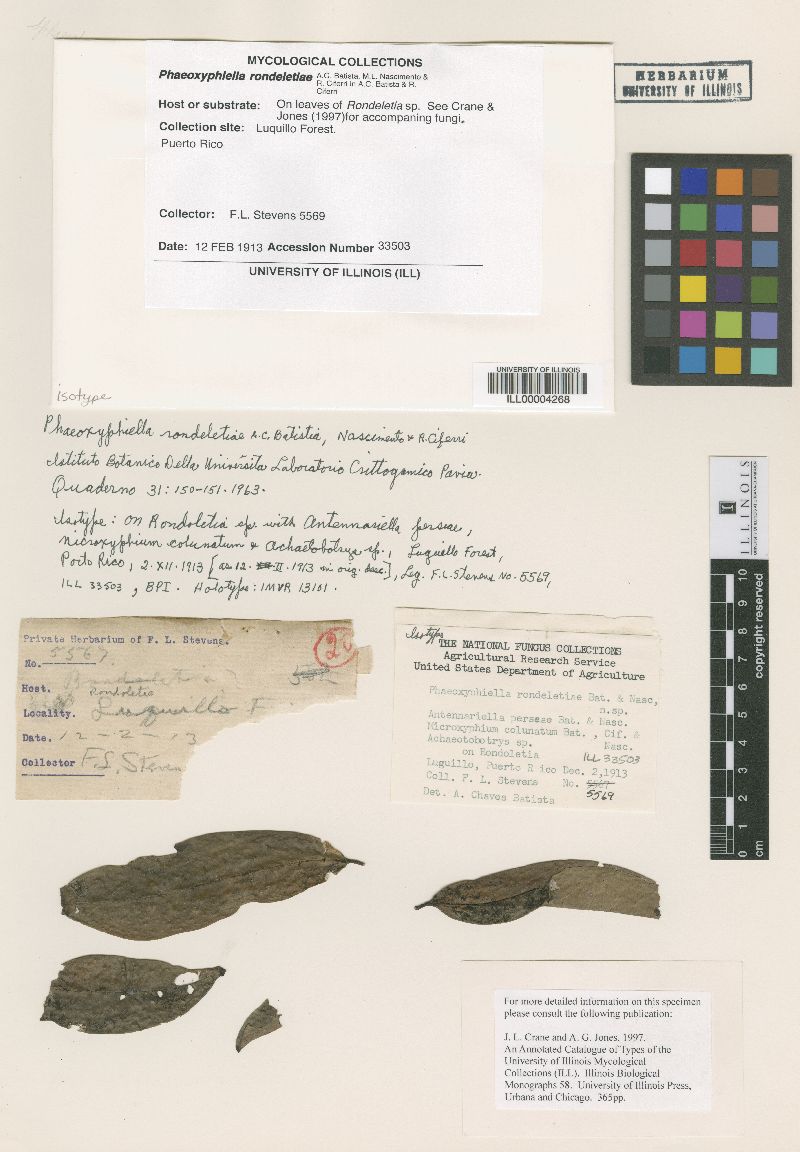 MYCOLOGICAL COLLECTIONS
Phaeoxyphiella rondeletiae A.C. Batista, M.L. Nascimento &
R. Ciferri in A.C. Batista & R.
Ciferri
Host or substrate: On leaves of Rondeletia sp. See Crane &
Jones (1997)for accompaning fungi.
Collection site: Luquillo Forest.
Puerto Rico
Collector: F.L. Stevens 5569
Date: 12 FEB 1913 Accession Number 33503
UNIVERSITY OF ILLINOIS (ILL)
HERBARIUM
UNIVERSITY OF ILLINOIS
UNIVERSITY OF ILLINOIS
ILL00004268
isotype
Phaeoxyphiella rondeletiae A.C. Batistia, Nascimento & R. Ciferri
Istituto Botanico Della Universita Laboratorio Crittogamico Pavia
Quaderno 31: 150-151. 1963.
Isotype: on Rondoletia sp. with Antennariella perseae,
Microxyphium columatum & Achaetobotrys sp., Luquillo Forest,
Porto Rico, 2. XII. 1913 [as 12. II. 1913 in orig. desc.], Leg. F.L. Stevens No. 5569,
ILL 33503, BPI. Holotype: IMUR 13101.
Private Herbarium of F. L. Stevens.
No. 5569
Host.
Rondoletia
Locality. Luquillo F
Date. 12-2-13
Collector F.L. Steven
Isotype
THE NATIONAL FUNGUS COLLECTIONS
Agricultural Research Service
United States Department of Agriculture
Phaeoxyphiella rondeletiae Bat. & Nasc,
n.sp.
Antennariella perseae Bat. & Nasc.
Microxyphium colunatum Bat., Cif. &
Achaetobotrys sp. Nasc.
on Rondoletia ILL 33503
Luguillo, Puerto R ico Dec. 2,1913
Coll. F. L. Stevens No. 5569
Det. A. Chaves Batista
ILLINOIS
UNIVERSITY OF ILLINOIS AT URBANA-CHAMPAIGN
0 1 2 3 4 5 6 7 8 9 10
cm
copyright reserved
For more detailed information on this specimen
please consult the following publication:
J. L. Crane and A. G. Jones. 1997.
An Annotated Catalogue of Types of the
University of Illinois Mycological
Collections (ILL). Illinois Biological
Monographs 58. University of Illinois Press,
Urbana and Chicago. 365pp.